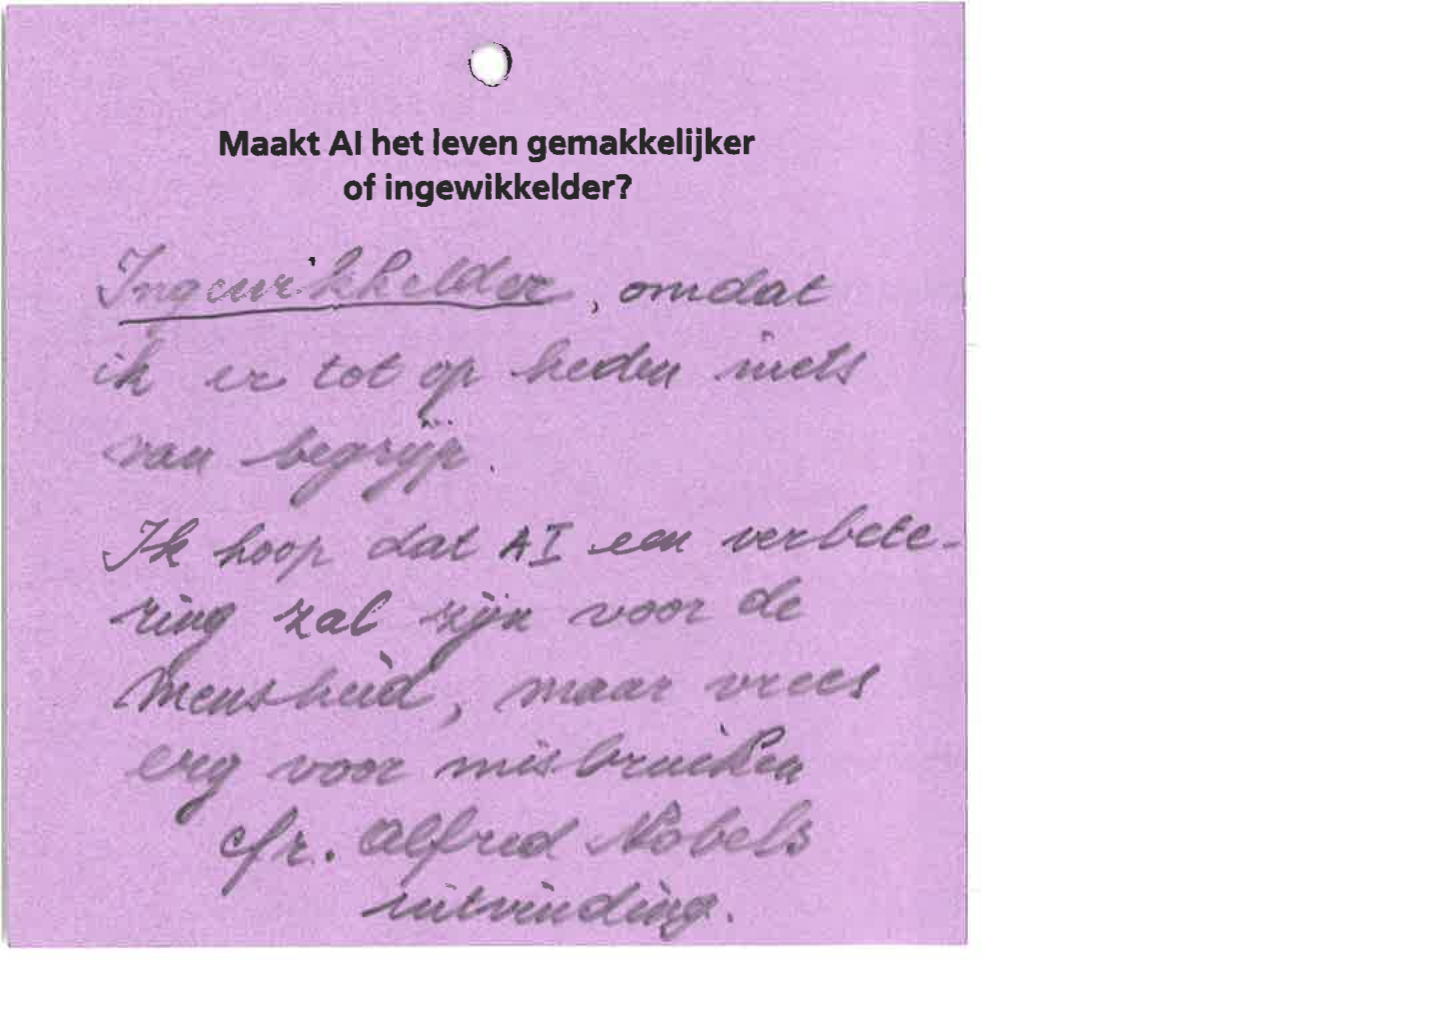 Maakt AI het leven gemakkelijker
of ingewikkelder?
Ingewikkelder, omdat
ik er tot op heden niets
van begrijp.
Ik hoop dat AI een verbete-
ring zal zijn voor de
mensheid, maar vrees
erg voor misbruiken
cfr. Alfred Nobels
uitvinding.